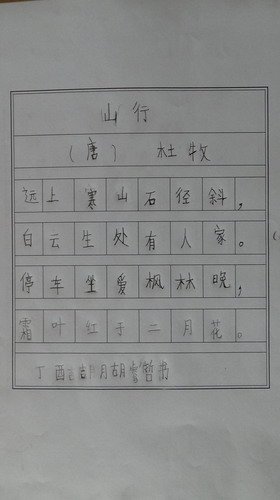 山行
（唐） 杜牧
远上寒山石径斜，
白云生处有人家。
停车坐爱枫林晚，
霜叶红于二月花。
丁酉 月胡 书